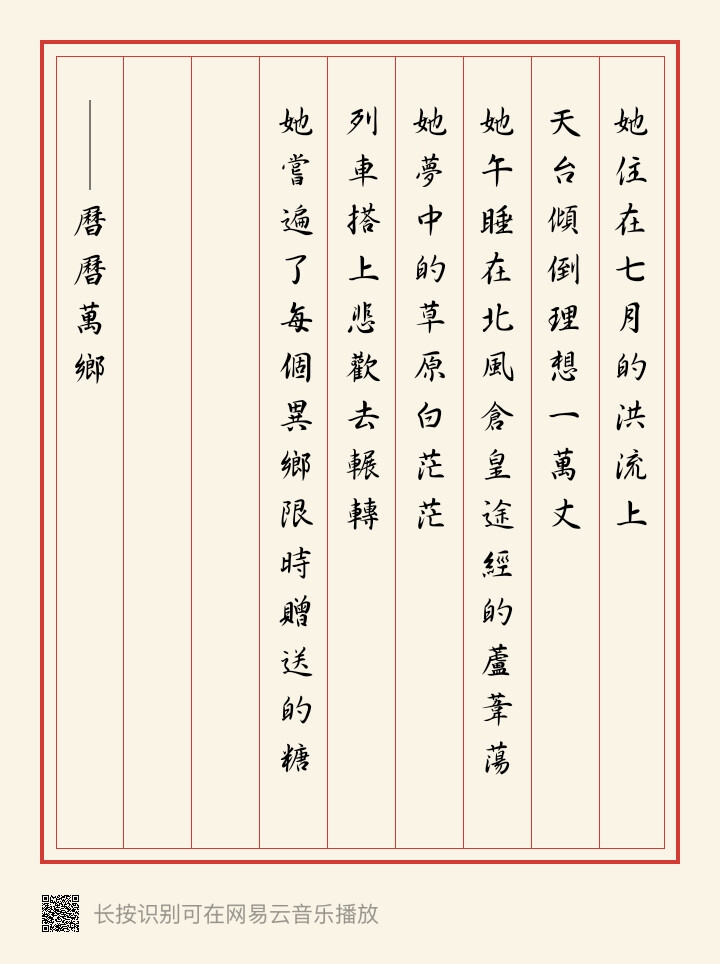 她住在七月的洪流上
天台傾倒理想一萬丈
她午睡在北風倉皇途經的蘆葦蕩
她夢中的草原白茫茫
列車搭上悲歡去輾轉
她嘗遍了每個異鄉限時贈送的糖
——曆曆萬鄉
长按识别可在网易云音乐播放